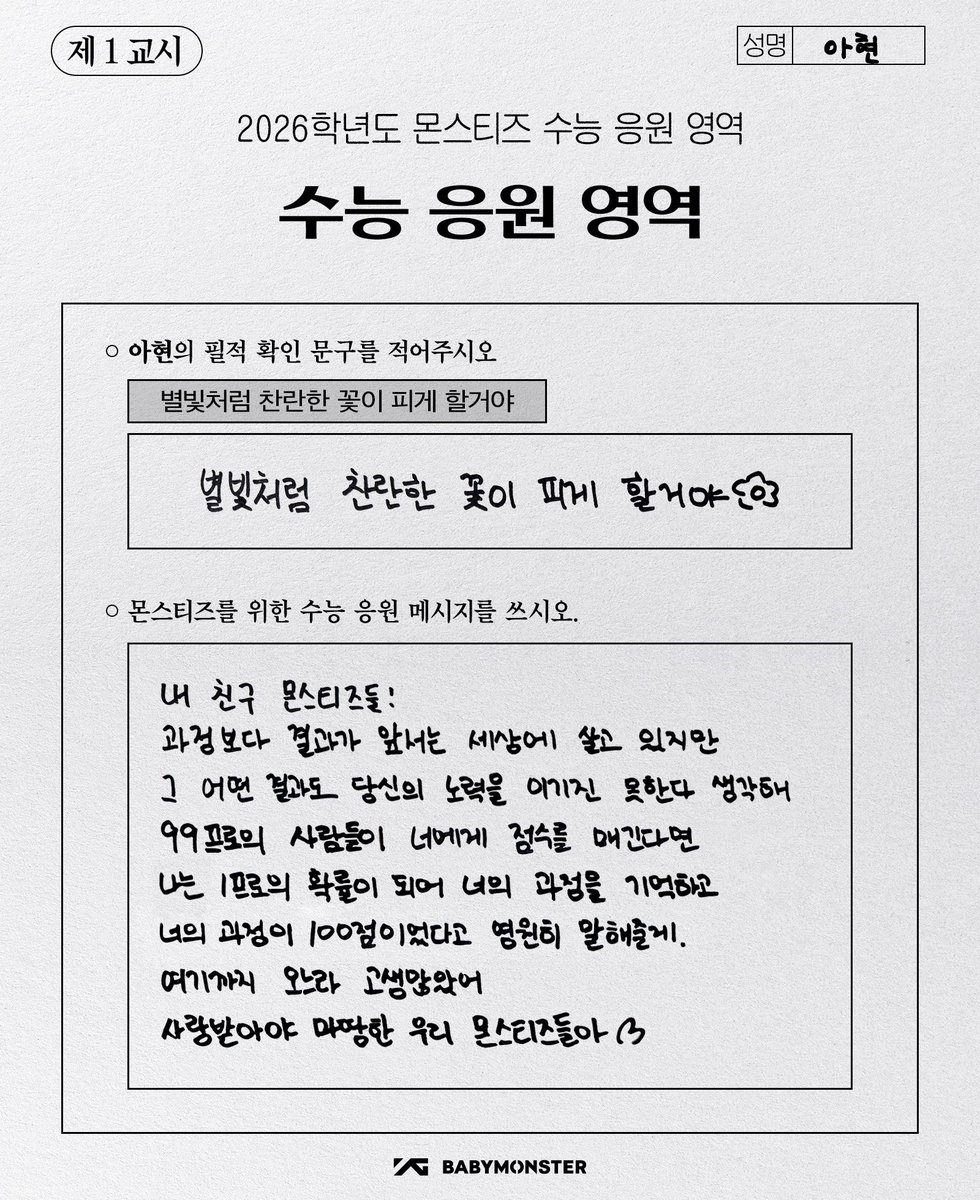 제 1 교시
성명 아현
2026학년도 몬스티즈 수능 응원 영역
수능 응원 영역
○ 아현의 필적 확인 문구를 적어주시오
별빛처럼 찬란한 꽃이 피게 할거야
별빛처럼 찬란한 꽃이 피게 할거야
○ 몬스티즈를 위한 수능 응원 메시지를 쓰시오.
내 친구 몬스티즈들!
과정보다 결과가 앞서는 세상에 살고 있지만
그 어떤 결과도 당신의 노력을 이기진 못한다 생각해
99프로의 사람들이 너에게 점수를 매긴다면
나는 1프로의 확률이 되어 너의 과정을 기억하고
너의 과정이 100점이었다고 영원히 말해줄게.
여기까지 오느라 고생많았어
사랑받아야 마땅한 우리 몬스티즈들아 (3
YG BABYMONSTER